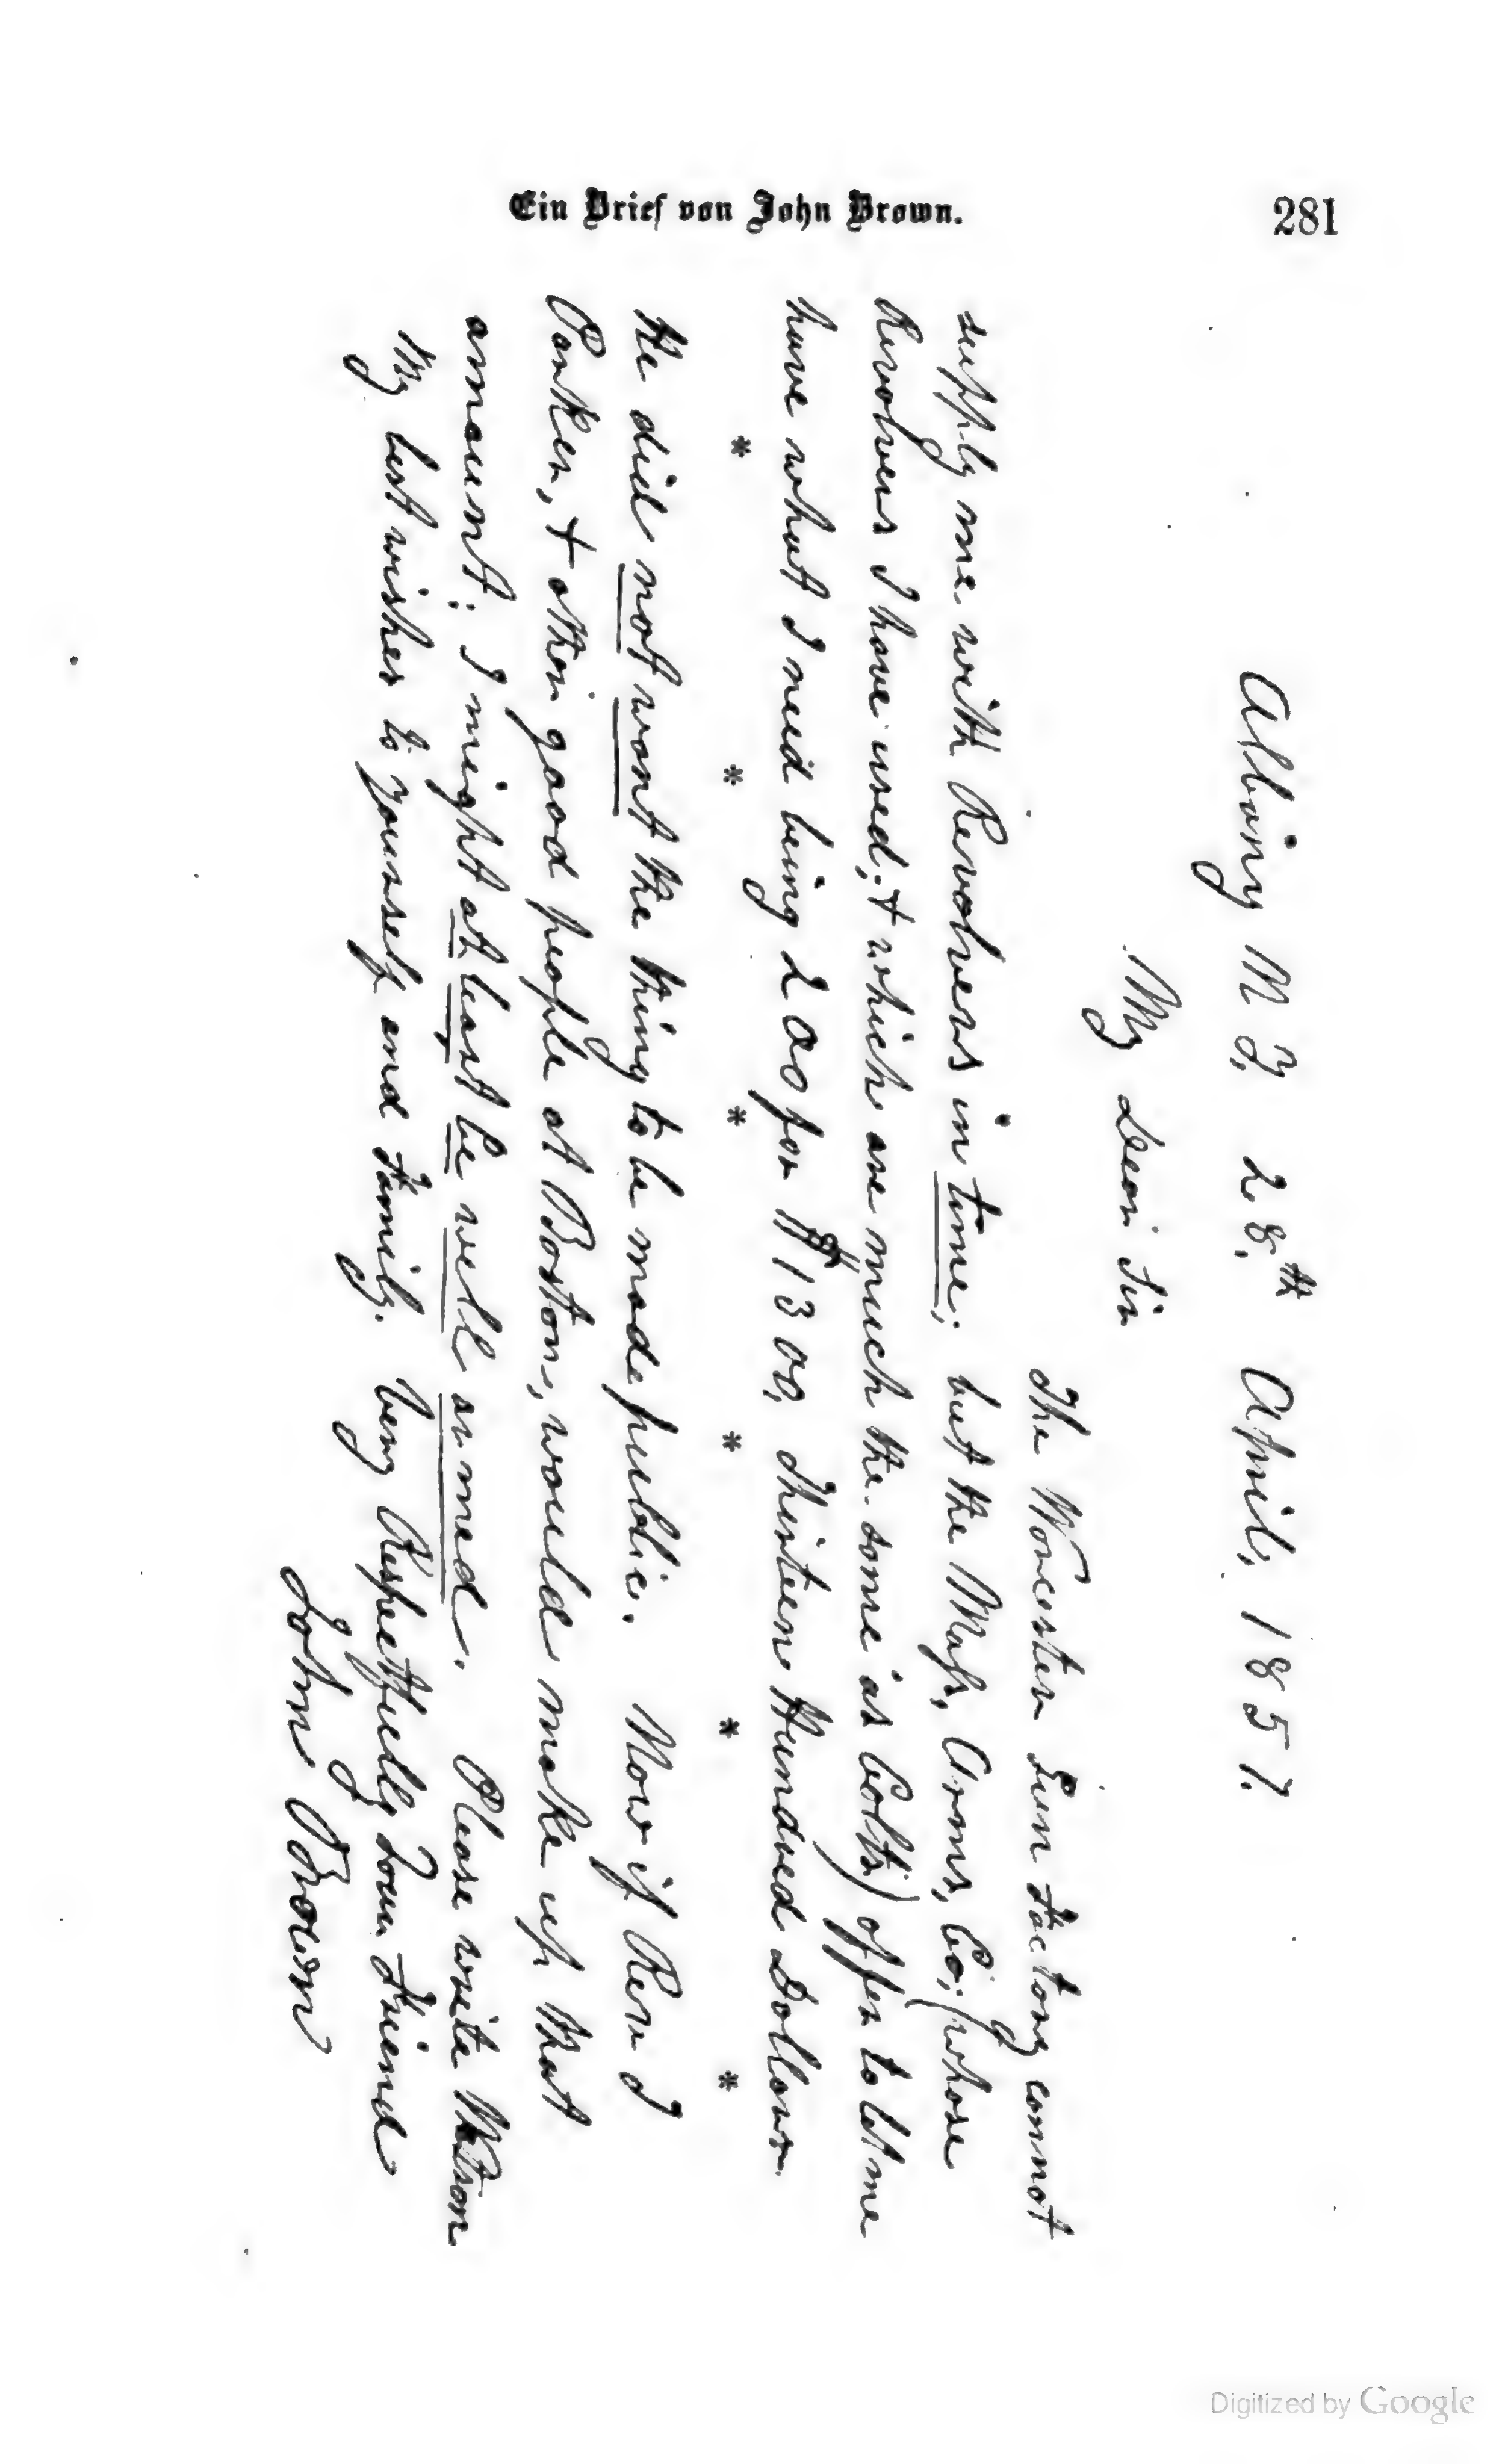 Ein Brief von John Brown.
281
Albany N Y, 28,th April, 1857.
My Dear Sir
The Worcester Gun Factory cannot
supply me with Revolvers in time; but the Mass, Arms, Co; (whose
Revolvers I have used; & which are much the same as Colts) offer to let me
have what I need being 200 for $1300, Thirteen Hundred Dollars.
* * * * * *
He did not want the thing to be made public. Now if Rev T
Parker, & other good people at Boston, would make up that
amount; I might at least be well armed. Please write
My best wishes to yourself and Family. Very Respectfully Your Friend
John Brown
Digitized by Google